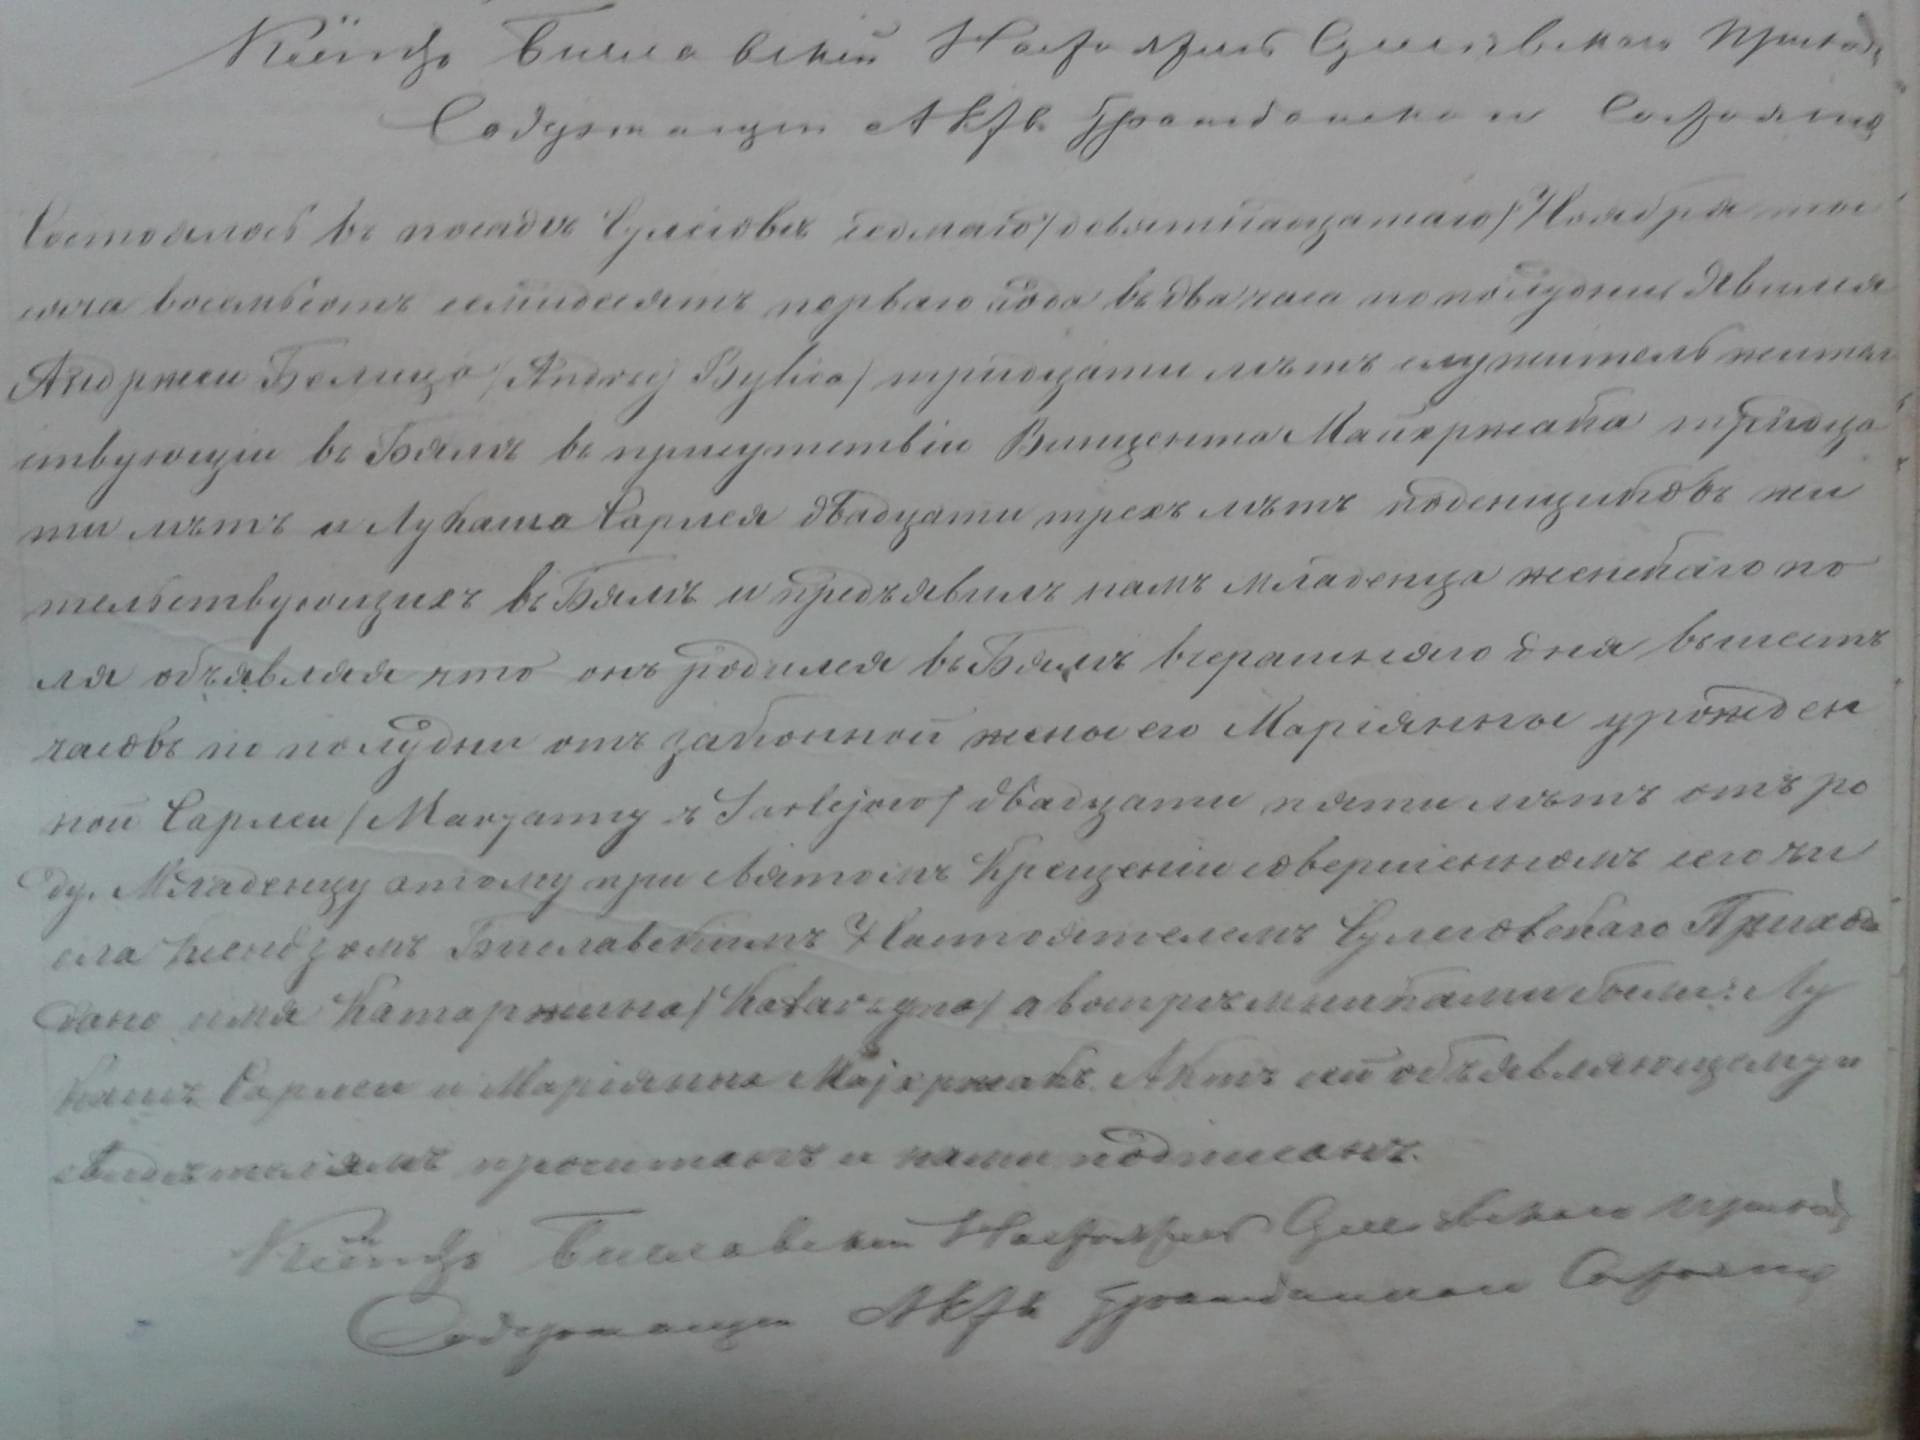 Ксёндзъ Биелавскій Настоятель Сулеіовскаго Прихода
Содержащій Актъ Гражданскаго Состоянія
Состоялось въ посадѣ Сулеіовѣ седмаго /девятнадцатаго/ Ноября ты
сяча восемьсотъ семидесятъ перваго года въ два часа по полудни Явился
Андржей Белица /Andrzej Bylica/ тридцати лѣтъ служитель жител
ствующій въ Бялѣ въ присутствіи Винцента Маіхржака тридца
ти лѣтъ и Лукаша Сарлея двадцати трехъ лѣтъ поденщиковъ жи
тельствующихъ въ Бялѣ и предъявилъ намъ младенца женскаго по
ла объявляя что онъ родился въ Бялѣ вчерашняго дня въ шесть
часовъ по полудни отъ законной жены его Маріянны урожден
ной Сарлей /Maryanny z Sarlejow/ двадцати пяти лѣтъ отъ ро
ду. Младенцу этому при Святомъ Крещеніи совершенномъ сего чи
сла Ксендзомъ Биелавскимъ Настоятелемъ Сулеіовскаго Прихода
дано имя Катаржина /Katarzyna/ а воспріемниками были: Лу
кашъ Сарлей и Маріянна Маjхржакъ. Актъ сей объявляющему и
свидѣтелямъ прочитанъ и нами подписанъ.
Ксёндзъ Биелавскій Настоятель Сулеіовскаго Прихода
Содержащій Актъ Гражданскаго Состоянія